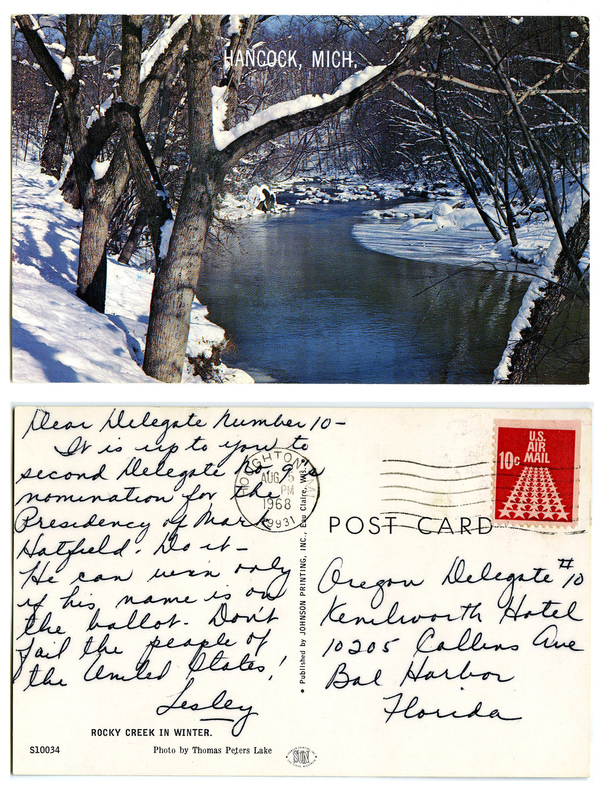 HANCOCK, MICH.
Dear Delegate Number 10-
It is up to you to
second Delegate No. 9's
nomination for the
Presidency of Mark
Hatfield. Do it-
He can win only
if his name is on
the ballot. Don't
fail the people of
the United States!
Lesley
ROCKY CREEK IN WINTER.
S10034
Photo by Thomas Peters Lake
Published by JOHNSON PRINTING, INC., Eau Claire, Wis.
HOUGHTON, MI
AUG 5
PM
1968
49931
U.S.
AIR
MAIL
10c
POST CARD
Oregon Delegate #10
Kenilworth Hotel
10205 Collins Ave
Bal Harbor
Florida